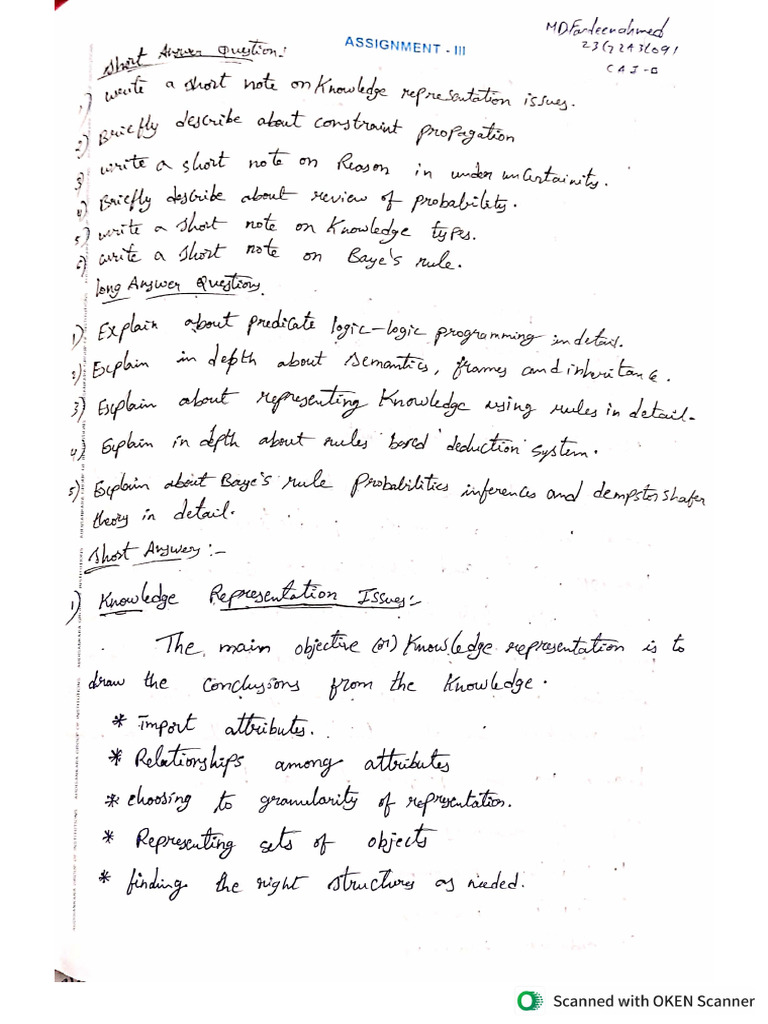 ASSIGNMENT - III
MDFardeenahmed
CAI-B
Short Answer Question:
1) write a short note on Knowledge representation issues.
2) Briefly describe about constraint propagation
3) write a short note on Reason in under uncertainity.
4) Briefly describe about review of probability.
5) write a short note on Knowledge types.
6) write a short note on Baye's rule.
long Answer Questions
1) Explain about predicate logic-logic programming in detail.
2) Explain in depth about semantics, frames and inheritance.
3) Explain about representing Knowledge using rules in detail.
4) Explain in depth about rules based deduction system.
5) Explain about Baye's rule Probabilities inferences and dempstorshafer
theory in detail.
Short Answers:-
1) Knowledge Representation Issues:-
The main objective (or) Knowledge representation is to
draw the conclusions from the Knowledge.
* import attributes.
* Relationships among attributes
* choosing to granularity of representation.
* Representing sets of objects
* finding the right structures as needed.
Scanned with OKEN Scanner